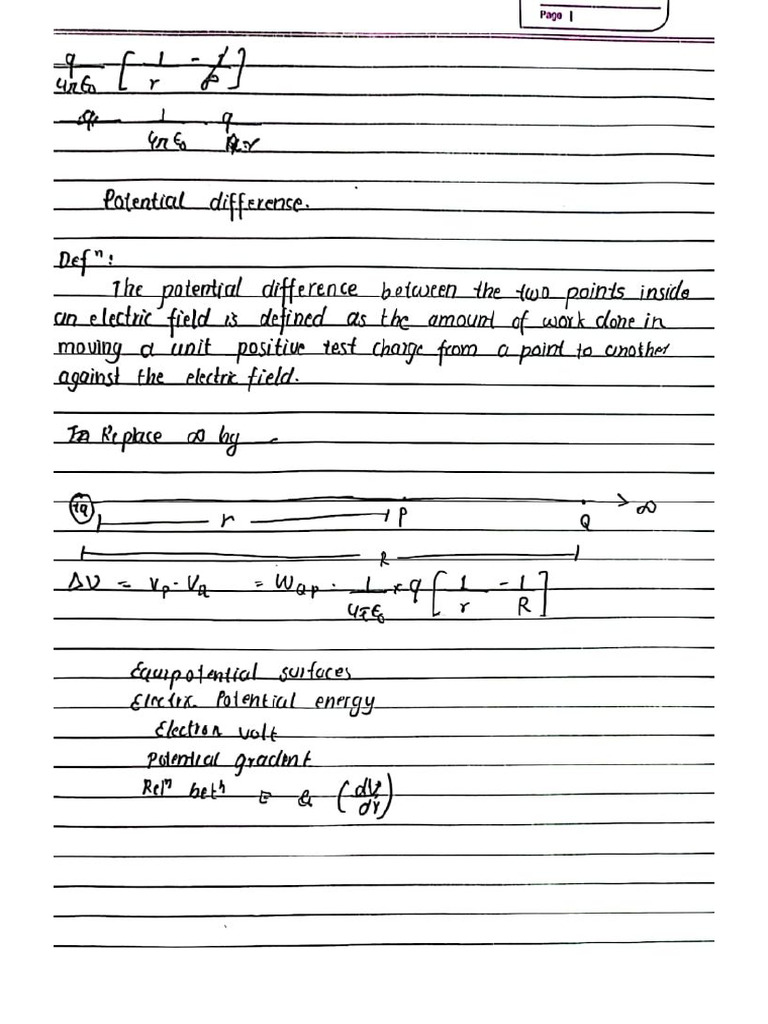 Page 1
q/4πε₀ [1/r - 1/∞]
1/4πε₀ q/r
Potential difference.
Defⁿ:
The potential difference between the two points inside
an electric field is defined as the amount of work done in
moving a unit positive test charge from a point to another
against the electric field.
Replace ∞ by
+q r P Q ∞
R
ΔV = Vp - VQ = WQP = 1/4πε₀ × q [1/r - 1/R]
Equipotential surfaces
Electric Potential energy
Electron volt
Potential gradent
Relⁿ betⁿ E & (dV/dr)